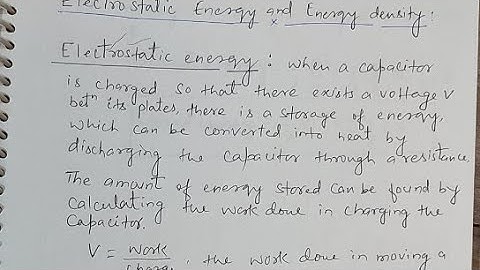 Electrostatic Energy and Energy density:
Electrostatic energy: when a capacitor
is charged so that there exists a voltage V
betn its plates, there is a storage of energy,
which can be converted into heat by
discharging the capacitor through a resistance.
The amount of energy stored can be found by
calculating the work done in charging the
Capacitor.
V = work/charge, the work done in moving a